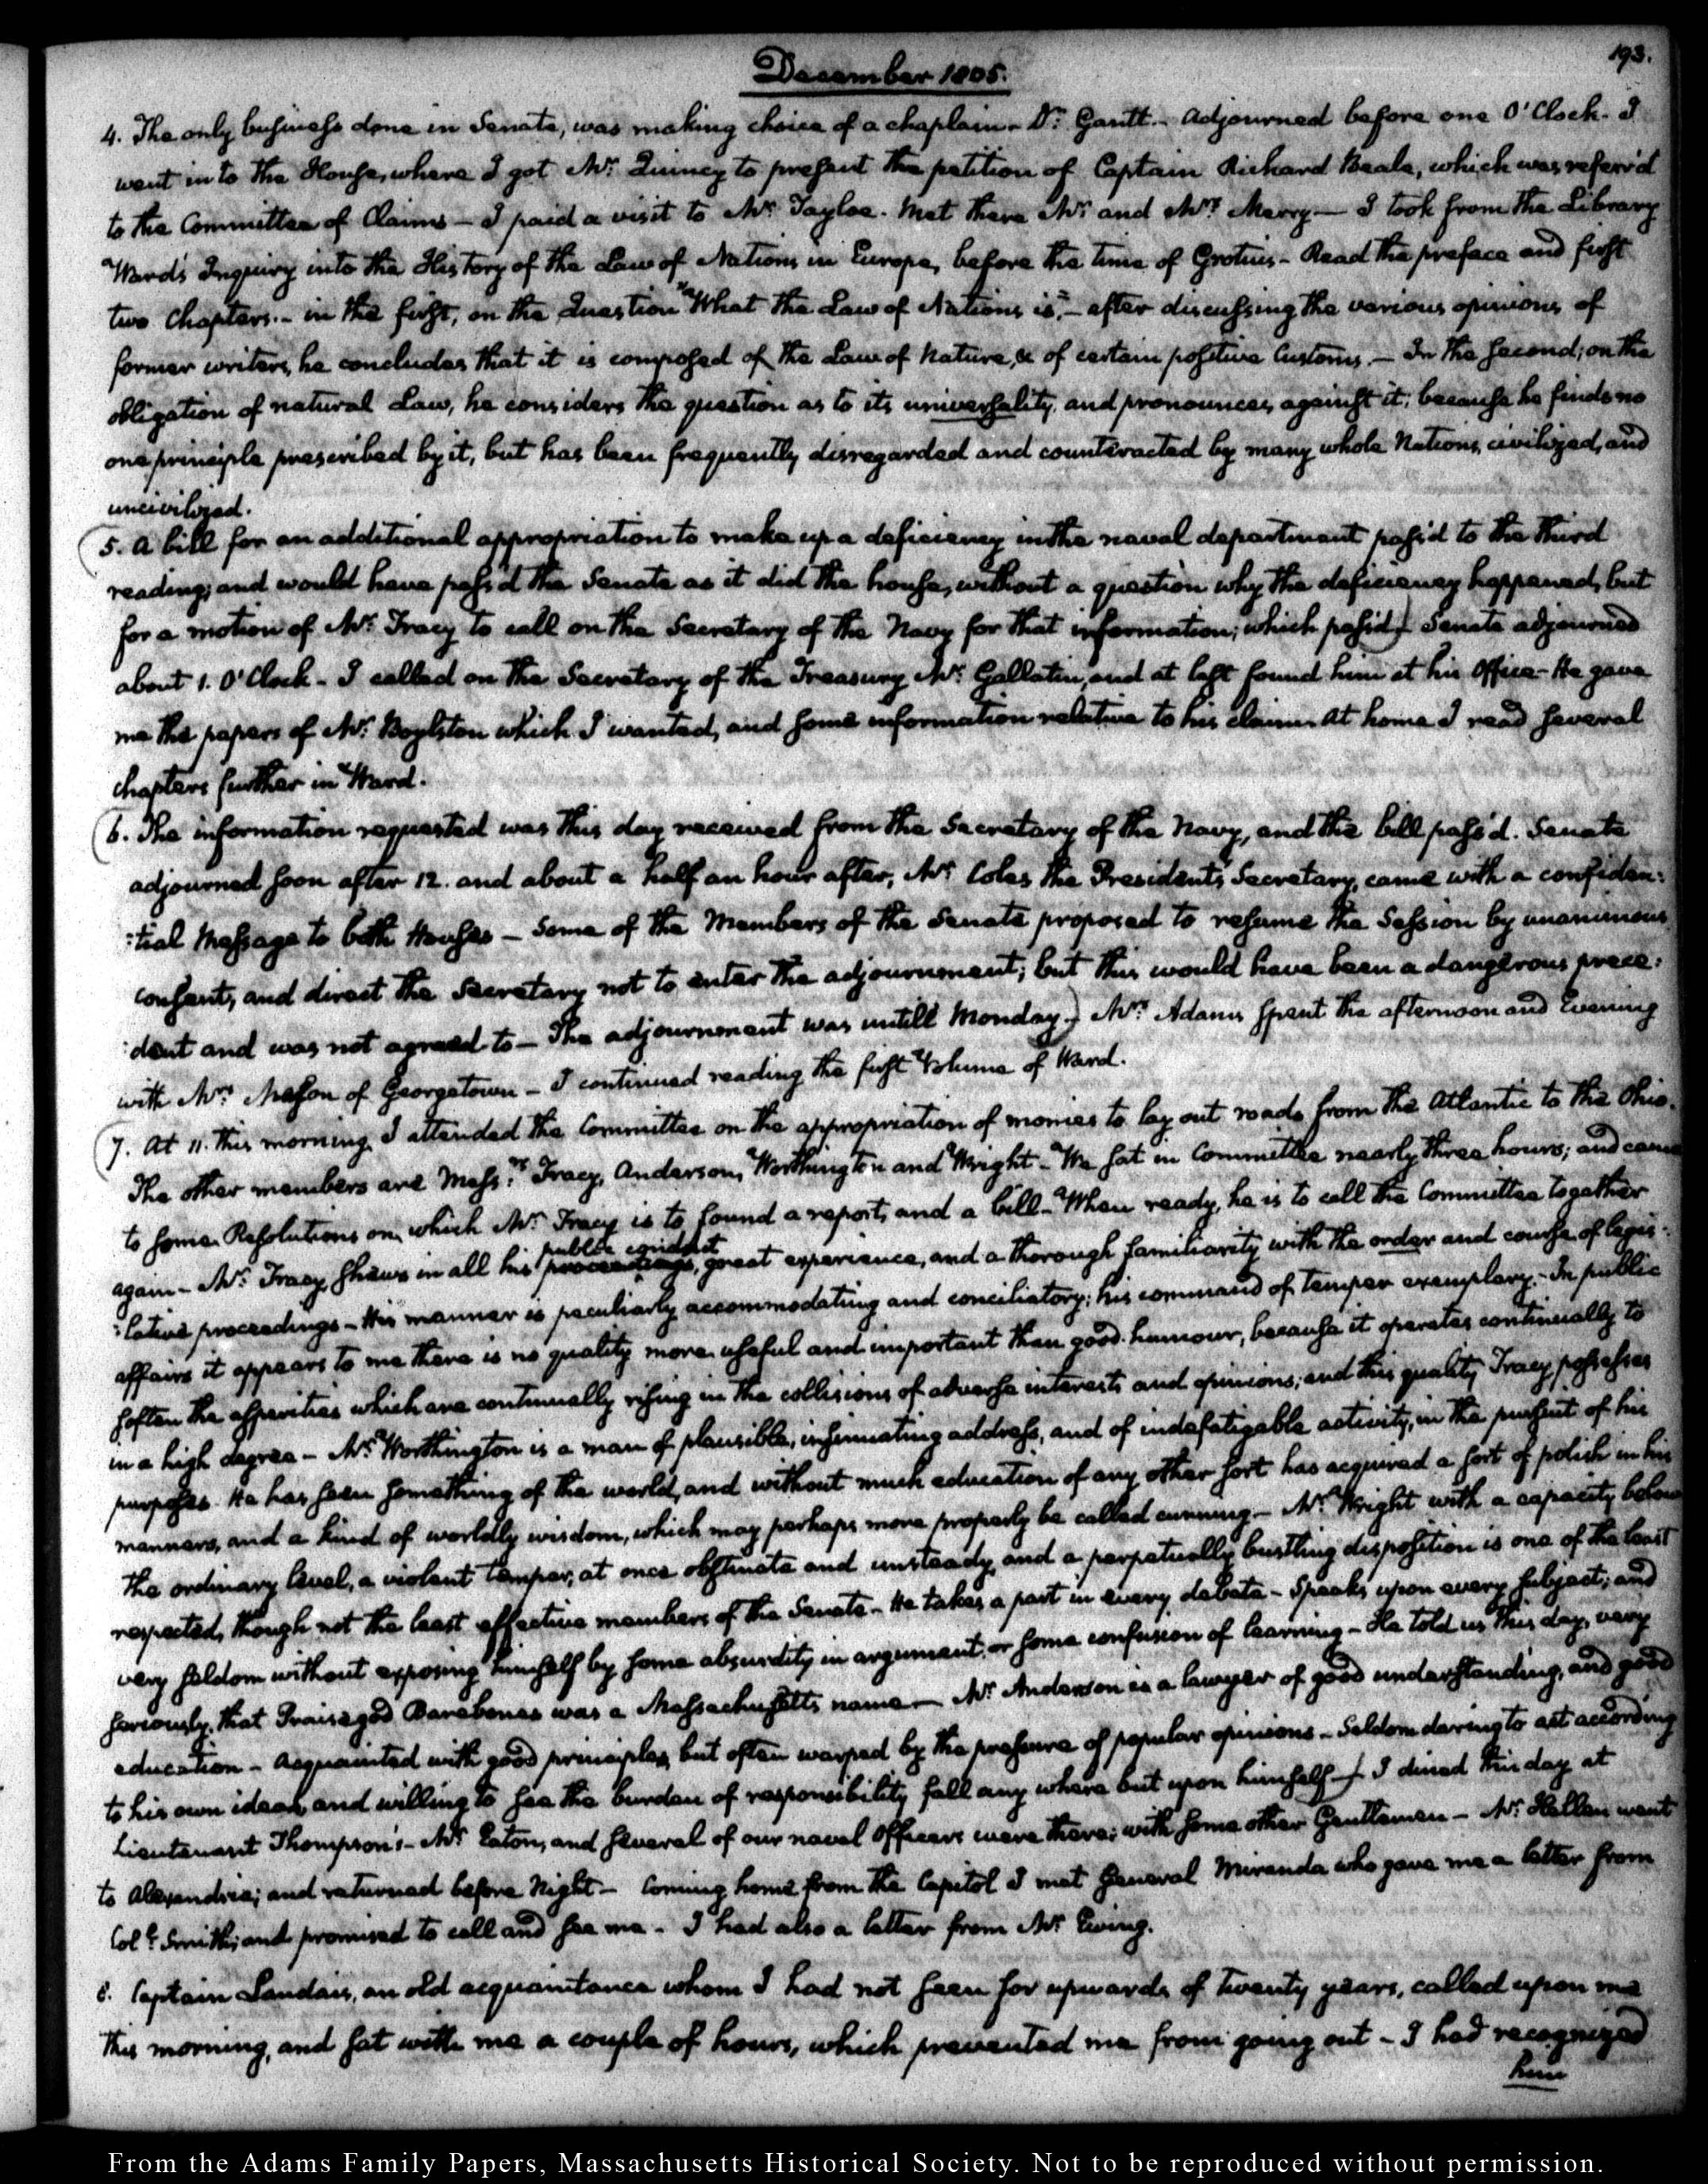 193.
December 1805.
4. The only business done in Senate, was making choice of a chaplain - Dr. Gantt. - Adjourned before one O'Clock. I
went into the House, where I got Mr. Quincy to present the petition of Captain Richard Beale, which was referr'd
to the Committee of Claims - I paid a visit to Mr. Tayloe. Met there Mr. and Mrs. Merry - I took from the Library
Ward's Inquiry into the History of the Law of Nations in Europe, before the time of Grotius - Read the preface and first
two Chapters. - in the first, on the Question "What the Law of Nations is," - after discussing the various opinions of
former writers, he concludes that it is composed of the Law of Nature, & of certain positive Customs. - In the second; on the
obligation of natural Law, he considers the question as to its universality, and pronounces, against it; because he finds no
one principle prescribed by it, but has been frequently disregarded and counteracted by many whole Nations, civilized, and
uncivilized.
(5. A bill for an additional appropriation to make up a deficiency in the naval department pass'd to the third
reading; and would have pass'd the Senate as it did the house, without a question why the deficiency happened, but
for a motion of Mr. Tracy to call on the Secretary of the Navy for that information; which pass'd) Senate adjourned
about 1. O'Clock - I called on the Secretary of the Treasury Mr. Gallatin, and at last found him at his Office - He gave
me the papers of Mr. Boylston which I wanted, and some information relative to his claims. At home I read several
chapters further in Ward.
(6. The information requested was this day received from the Secretary of the Navy, and the bill pass'd. Senate
adjourned soon after 12. and about a half an hour after, Mr. Coles the President's Secretary, came with a confiden:
:tial Message to both Houses - Some of the Members of the Senate proposed to resume the Session by unanimous
consent, and direct the Secretary not to enter the adjournment; but this would have been a dangerous prece:
:dent and was not agreed to - The adjournment was untill Monday.) Mrs. Adams spent the afternoon and Evening
with Mrs. Mason of Georgetown - I continued reading the first Volume of Ward.
(7. At 11. this morning, I attended the Committee on the appropriation of monies to lay out roads from the Atlantic to the Ohio.
The other members are Messrs. Tracy, Anderson, Worthington and Wright - We sat in Committee nearly three hours; and came
to some Resolutions on which Mr. Tracy is to found a report, and a bill - When ready, he is to call the Committee together
public conduct
again - Mr. Tracy shews in all his proceedings, great experience, and a thorough familiarity with the order and course of legis:
:lative proceedings - His manner is peculiarly accommodating and conciliatory; his command of temper exemplary. - In public
affairs it appears to me there is no quality more useful and important than good-humour, because it operates continually to
soften the asperities which are continually rising in the collisions of adverse interests and opinions; and this quality Tracy possesses
in a high degree - Mr. Worthington is a man of plausible, insinuating address, and of indefatigable activity, in the pursuit of his
purposes. He has seen something of the world, and without much education of any other sort has acquired a sort of polish in his
manners, and a kind of worldly wisdom, which may perhaps more properly be called cunning - Mr. Wright with a capacity below
the ordinary level, a violent temper, at once obstinate and unsteady, and a perpetually bustling disposition is one of the least
respected, though not the least effective members of the Senate - He takes a part in every debate - Speaks upon every subject; and
very seldom without exposing himself by some absurdity in argument, or some confusion of learning - He told us this day, very
seriously, that Praisegod Barebones was a Massachusetts name - Mr. Anderson is a lawyer of good understanding, and good
education - Acquainted with good principles, but often warped by the pressure of popular opinions - Seldom daring to act according
to his own ideas, and willing to see the burden of responsibility fall any where but upon himself -) I dined this day at
Lieutenant Thompson's - Mr. Eaton, and several of our naval Officers were there; with some other Gentlemen - Mr. Hellen went
to Alexandria; and returned before Night - Coming home from the Capitol I met General Miranda who gave me a letter from
Coll. Smith; and promised to call and see me - I had also a letter from Mr. Ewing.
8. Captain Landais, an old acquaintance whom I had not seen for upwards of twenty years, called upon me
this morning, and sat with me a couple of hours, which prevented me from going out - I had recognized
him
From the Adams Family Papers, Massachusetts Historical Society. Not to be reproduced without permission.